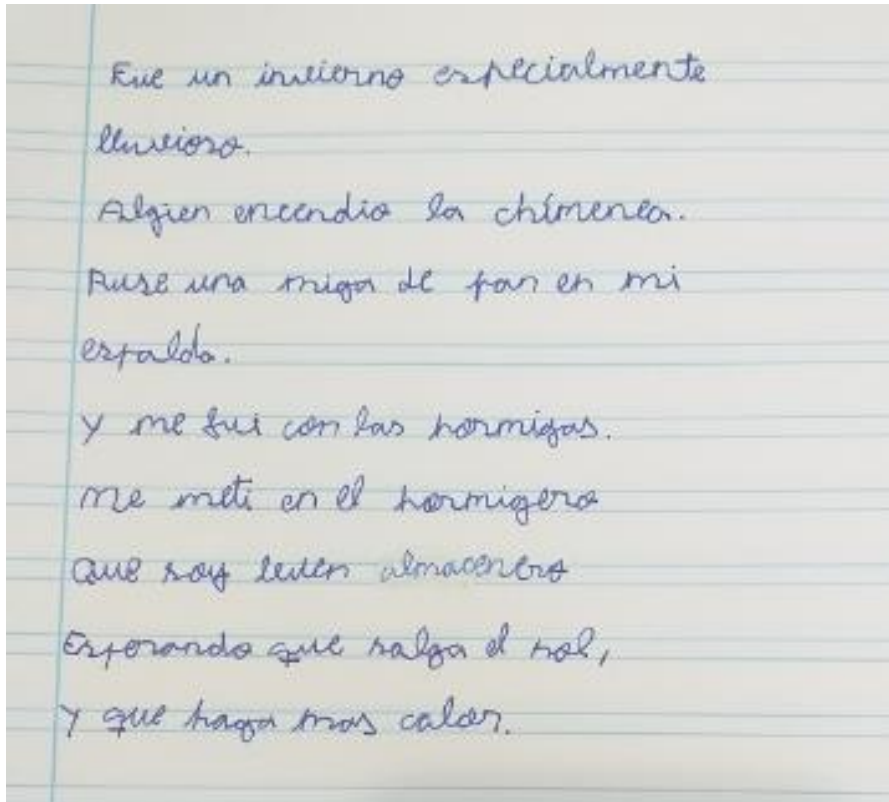 Fue un invierno especialmente
lluvioso.
Algien encendio la chimenea.
Puse una miga de pan en mi
espalda.
Y me fui con las hormigas.
Me meti en el hormigero
Que soy buen almacenero
Esperando que salga el sol,
Y que haga mas calor.